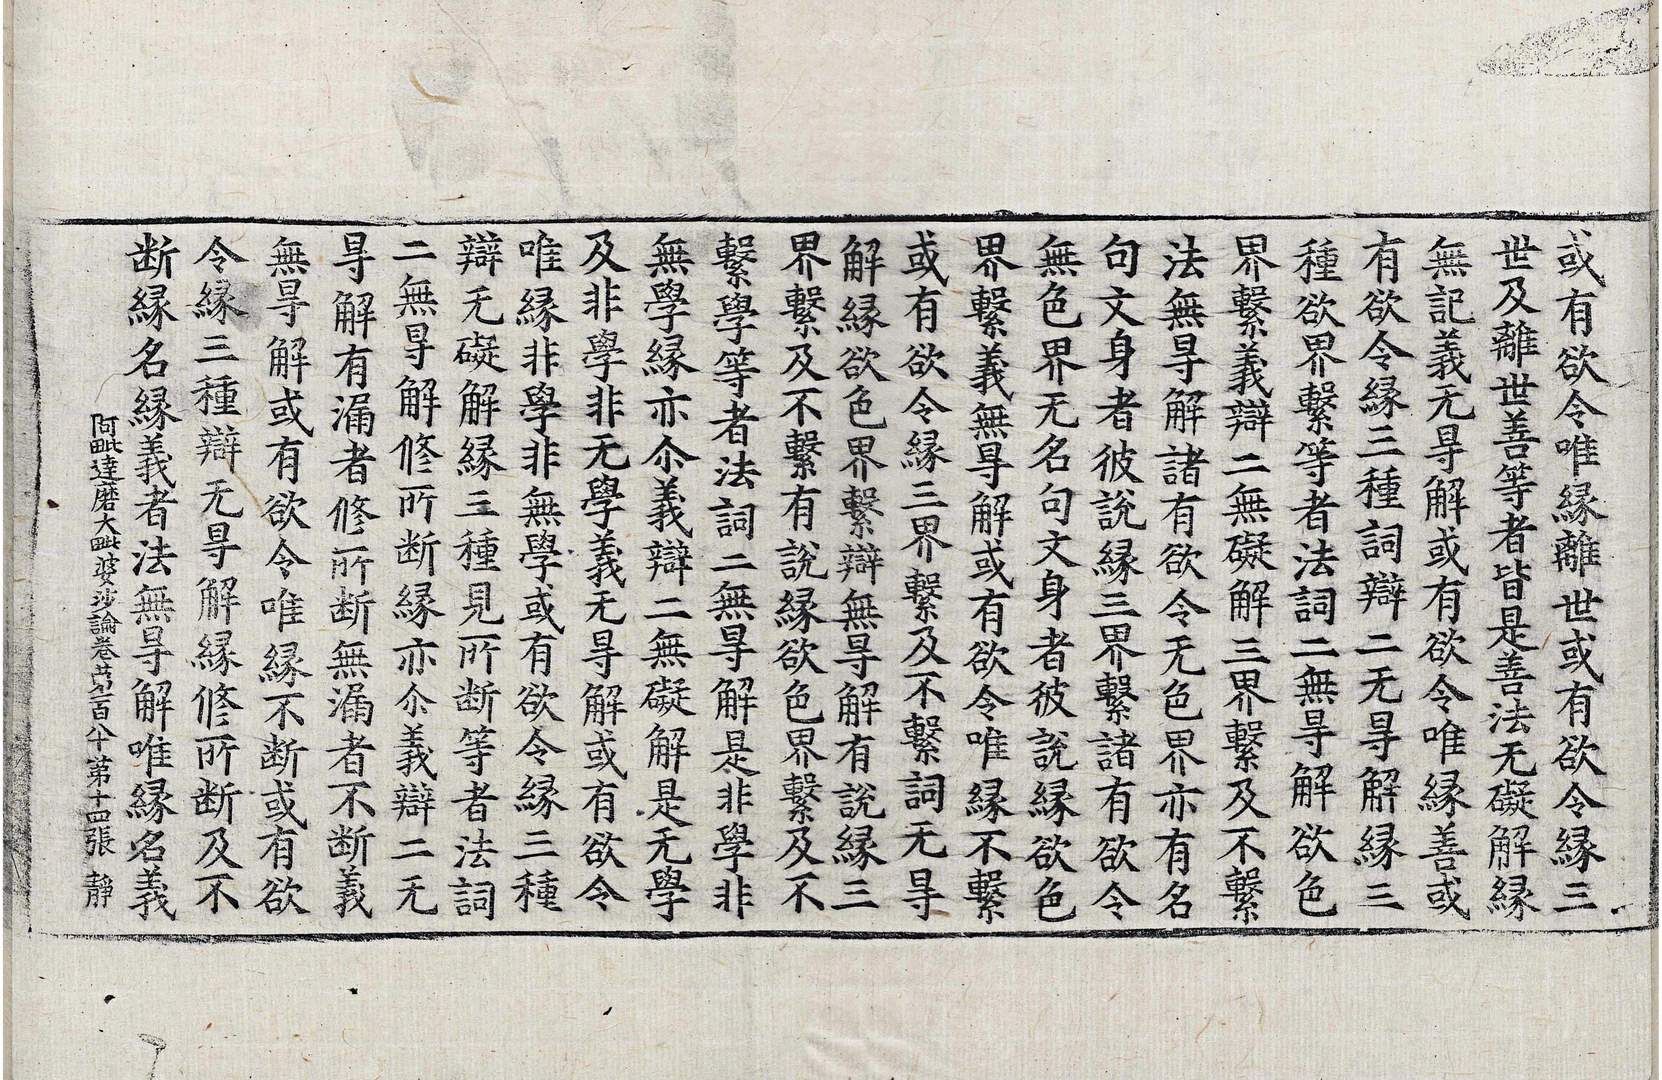 或有欲令唯縁離世或有欲令縁三
世及離世善等者皆是善法无礙解縁
無記義无㝵解或有欲令唯縁善或
有欲令縁三種詞辯二无㝵解縁三
種欲界繫等者法詞二無㝵解欲色
界繫義辯二無礙解三界繫及不繫
法無㝵解諸有欲令无色界亦有名
句文身者彼說縁三界繫諸有欲令
無色界无名句文身者彼說縁欲色
界繫義無㝵解或有欲令唯縁不繫
或有欲令縁三界繫及不繫詞无㝵
解縁欲色界繫辯無㝵解有說縁三
界繫及不繫有說縁欲色界繫及不
繫學等者法詞二無㝵解是非學非
無學縁亦尒義辯二無礙解是无學
及非學非无學義无㝵解或有欲令
唯縁非學非無學或有欲令縁三種
辯无礙解縁三種見所断等者法詞
二無㝵解修所断縁亦尒義辯二无
㝵解有漏者修所断無漏者不断義
無㝵解或有欲令唯縁不断或有欲
令縁三種辯无㝵解縁修所断及不
断縁名縁義者法無㝵解唯縁名義
阿毗達磨大毗婆沙論卷苐一百八十 苐十四張 靜